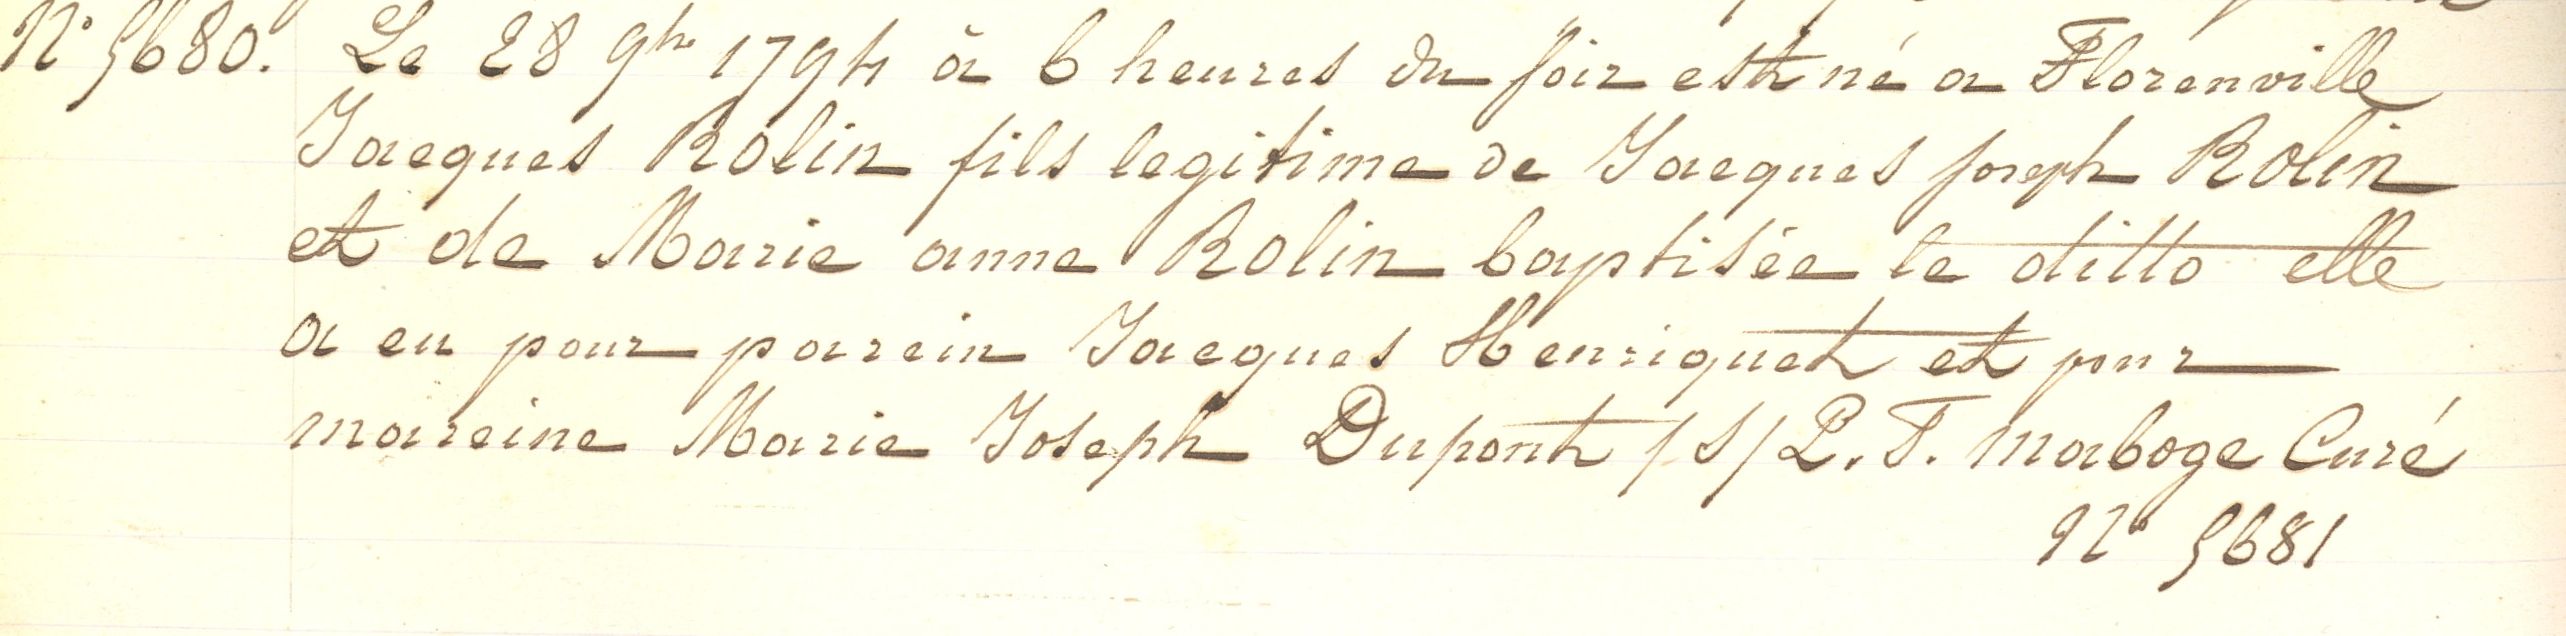 N° 5680. Le 28 9bre 1794 à 6 heures du soir est né a Florenville
Jacques Rolin fils legitime de Jacques joseph Rolin
et de Marie anne Rolin baptisée le ditto elle
a eu pour parein Jacques Henriquet et pour
mareine Marie Joseph Dupont /S/ P. T. Maboge Curé
N° 5681